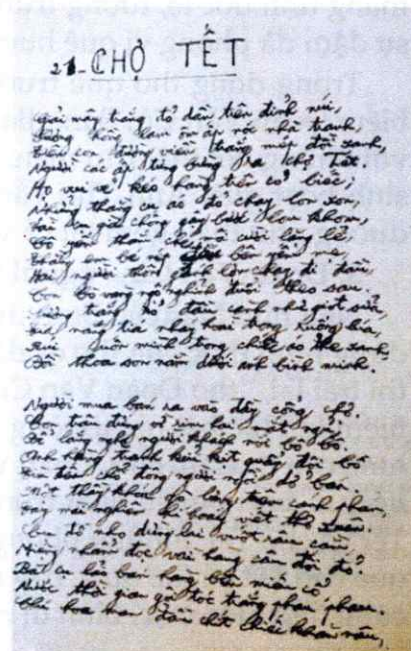 21- CHỢ TẾT
Dải mây trắng đỏ dần trên đỉnh núi,
Sương hồng lam ôm ấp nóc nhà tranh,
Trên con đường viền trắng mép đồi xanh,
Người các ấp tưng bừng ra chợ Tết.
Họ vui vẻ kéo hàng trên cỏ biếc,
Những thằng cu áo đỏ chạy lon xon,
Vài cụ già chống gậy bước lom khom,
Cô yếm thắm che môi cười lặng lẽ,
Thằng em bé nép đầu bên yếm mẹ,
Hai người thôn gánh lợn chạy đi đầu,
Con bò vàng ngộ nghĩnh đuổi theo sau.
Sương trắng rỏ đầu cành như giọt sữa,
Tia nắng tía nháy hoài trong ruộng lúa,
Núi uốn mình trong chiếc áo the xanh,
Đồi thoa son nằm dưới ánh bình minh.
Người mua bán ra vào đầy cổng chợ.
Con trâu đứng vờ rim hai mắt ngủ,
Để lắng nghe người khách nói bô bô.
Anh hàng tranh kĩu kịt quẩy đôi bồ
Tìm đến chỗ đông người ngồi dở bán.
Một thầy khóa gò lưng trên cánh phản,
Tay mài nghiên hí hoáy viết thơ xuân.
Cụ đồ nho dừng lại vuốt râu cằm,
Miệng nhẩm đọc vài hàng câu đối đỏ.
Bà cụ lão bán hàng bên miếu cổ
Nước thời gian gội tóc trắng phau phau.
Chú hoa man đầu chít chiếc khăn nâu,